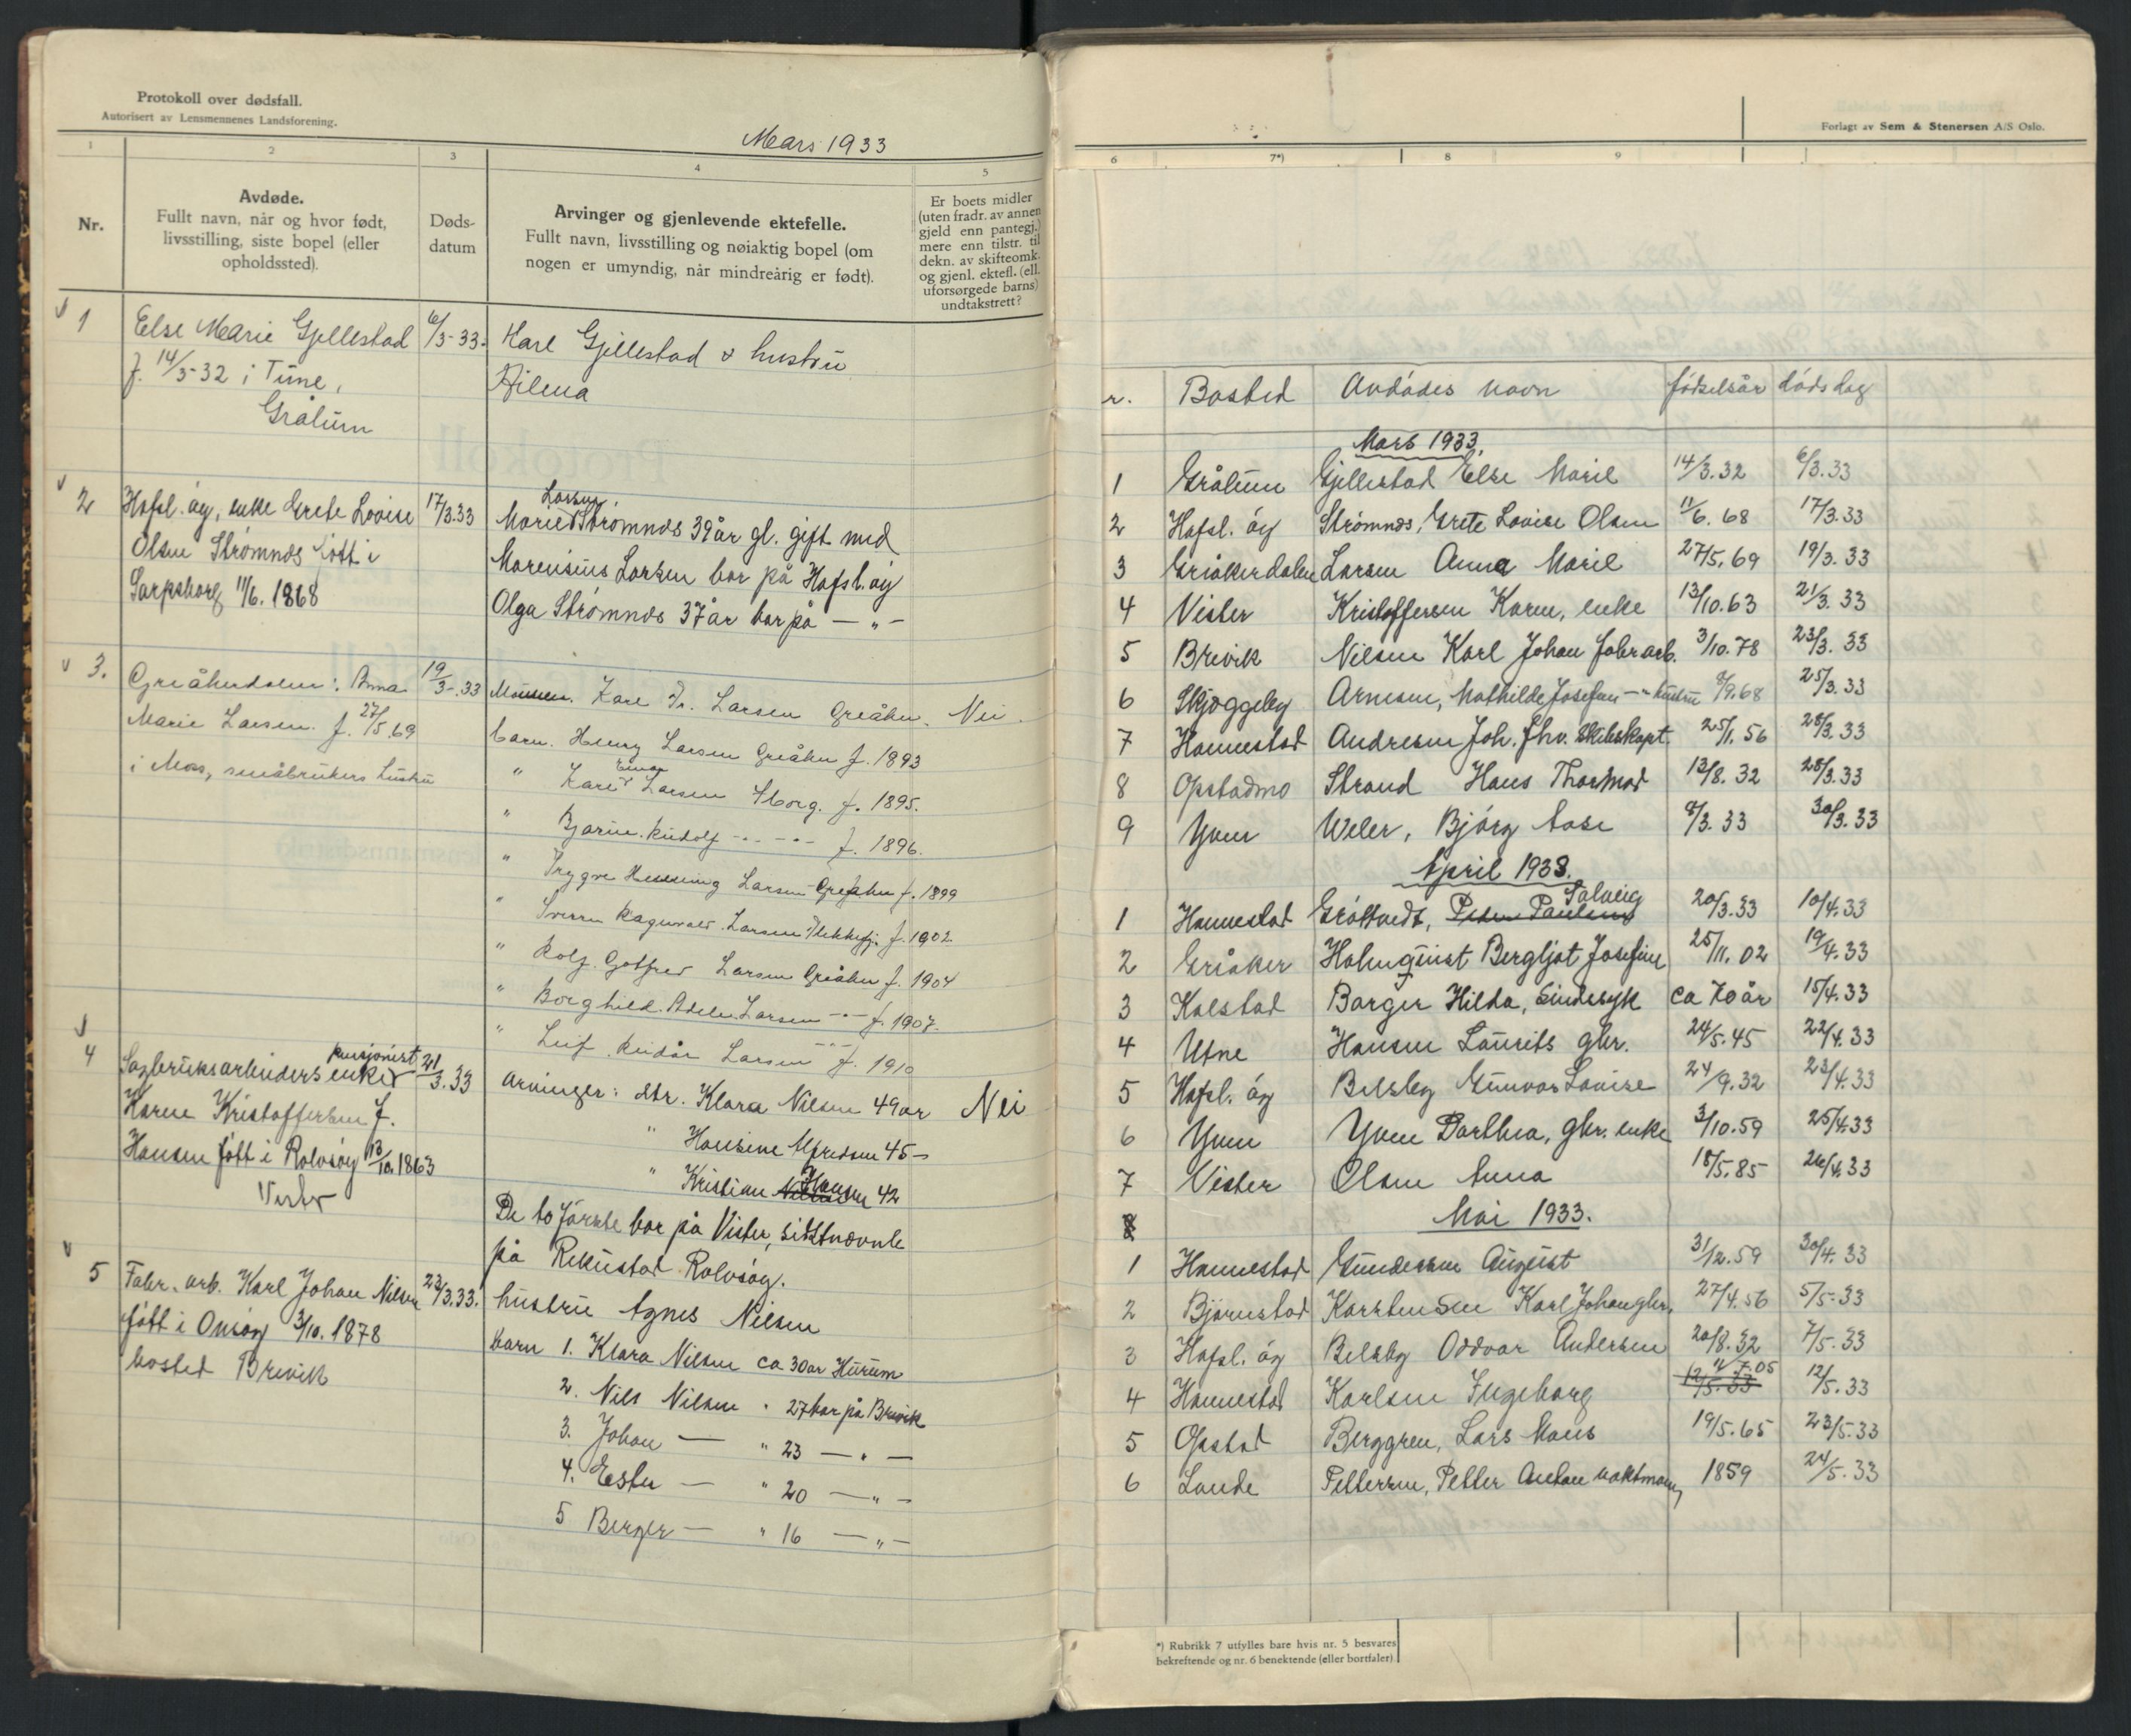 Protokoll over dødsfall.
Autorisert av Lensmennenes Landsforening.
Mars 1933
1 2 3 4 5
Nr.
Avdøde.
Fullt navn, når og hvor født,
livsstilling, siste bopel (eller
opholdssted).
Døds-
datum
Arvinger og gjenlevende ektefelle.
Fullt navn, livsstilling og nøiaktig bopel (om
nogen er umyndig, når mindreårig er født).
Er boets midler
(uten fradr. av annen
gjeld enn pantegj.)
mere enn tilstr. til
dekn. av skifteomk.
og gjenl. ektefl. (ell.
uforsørgede barns)
undtakstrett?
1 Else Marie Gjellestad 6/3-33. Karl Gjellestad & hustru
f. 14/3-32 i Tune,
Grålum
2 Hafsl. øy, enke Grete Lovise 17/3.33 Marie Larsen Strømnes 39 år gl. gift med
Olsen Strømnes født i Marensius Larsen bor på Hafsl. øy
Sarpsborg 11/6. 1868 Olga Strømnes 37 år bor på — " —
3. Greåkerdalen: Anna 19/3-33 Karl Fr. Larsen Greåker. Nei.
Marie Larsen. f. 27/5.69 barn. Henry Larsen Greåker f. 1893
i Moss, småbrukers hustru " Kare Einar Larsen Sborg. f. 1895.
" Bjarne Rudolf -"- -"- f. 1896.
" Trygve Henning Larsen Greåker f. 1899
" Sverre Ragnvald Larsen Flekkefj. f. 1902.
" Rolf Gotfred Larsen Greåker f. 1904
" Borghild Adele Larsen -"- f. 1907.
" Leif Reidar Larsen -"- f. 1910
4 Sagbruksarbeiders pensjonist enke 21/3.33 Arvinger: dtr. Klara Nilsen 49 år Nei
Karen Kristoffersen f. " Hansine Alfredsen 45 —
Hansen født i Rolvsøy 13/10.1863 " Kristian Nilsen Hansen 42
Vister De to første bor på Vister, sistnevnte
på Rekustad Rolvsøy.
5 Fabr. arb. Karl Johan Nilsen 23/3.33. hustru Agnes Nilsen
født i Onsøy 3/10. 1878 barn 1. Klara Nilsen ca 30 år Hurum
bosted Brevik 2. Nils Nilsen " 27 bor på Brevik
3. Johan — " 23 — " —
4. Ester — " 20 — " —
5 Berger — " 16 — " —
Forlagt av Sem & Stenersen A/S Oslo.
6 7*) 8 9
r. Bosted Avdødes navn fødselsår dødsdag
Mars 1933.
1 Grålum Gjellestad Else Marie 14/3.32 6/3.33
2 Hafsl. øy Strømnes, Grete Lovise Olsen 11/6. 68 17/3.33
3 Greåkerdalen Larsen Anna Marie 27/5.69 19/3.33
4 Vister Kristoffersen Karen, enke 13/10.63 21/3.33
5 Brevik Nilsen Karl Johan fabr.arb. 3/10.78 23/3.33
6 Skjeggeby Arnesen, Mathilde Josefine hustru 8/9.68 25/3.33
7 Hannestad Andresen Joh. fhv. skibskapt. 25/1.56 28/3.33
8 Opstadmo Strand Hans Thormod 13/8.32 28/3.33
9 Yven Weler, Bjørg Aase 8/3.33 30/3.33
April 1933.
1 Hannestad Grøttvedt, Peder Paulsen Solveig 20/3.33 10/4.33
2 Greåker Holmquist Bergljot Josefine 25/11.02 19/4.33
3 Kalstad Borger Hilda, sindssyk ca 70 år 15/4.33
4 Utne Hansen Laurits gbr. 24/5.45 22/4.33
5 Hafsl. øy Belsby Gunvor Lovise 24/9.32 23/4.33
6 Yven Yven Dorthea, gbr. enke 3/10.59 25/4.33
7 Vister Olsen Anna 18/5.85 26/4.33
8 Mai 1933.
1 Hannestad Gundersen August 31/12.59 30/4.33
2 Bjørnstad Karstensen Karl Johan gbr. 27/4.56 5/5-33
3 Hafsl. øy Belsby Oddvar Andersen 20/8.32 7/5-33
4 Hannestad Karlsen Ingeborg 12/5.33 4/7.05 12/5.33
5 Opstad Berggren, Lars Maus 19/5.65 23/5.33
6 Lande Pettersen, Petter Anton vaktmann 1859 24/5.33
*) Rubrikk 7 utfylles bare hvis nr. 5 besvares
bekreftende og nr. 6 benektende (eller bortfaler).